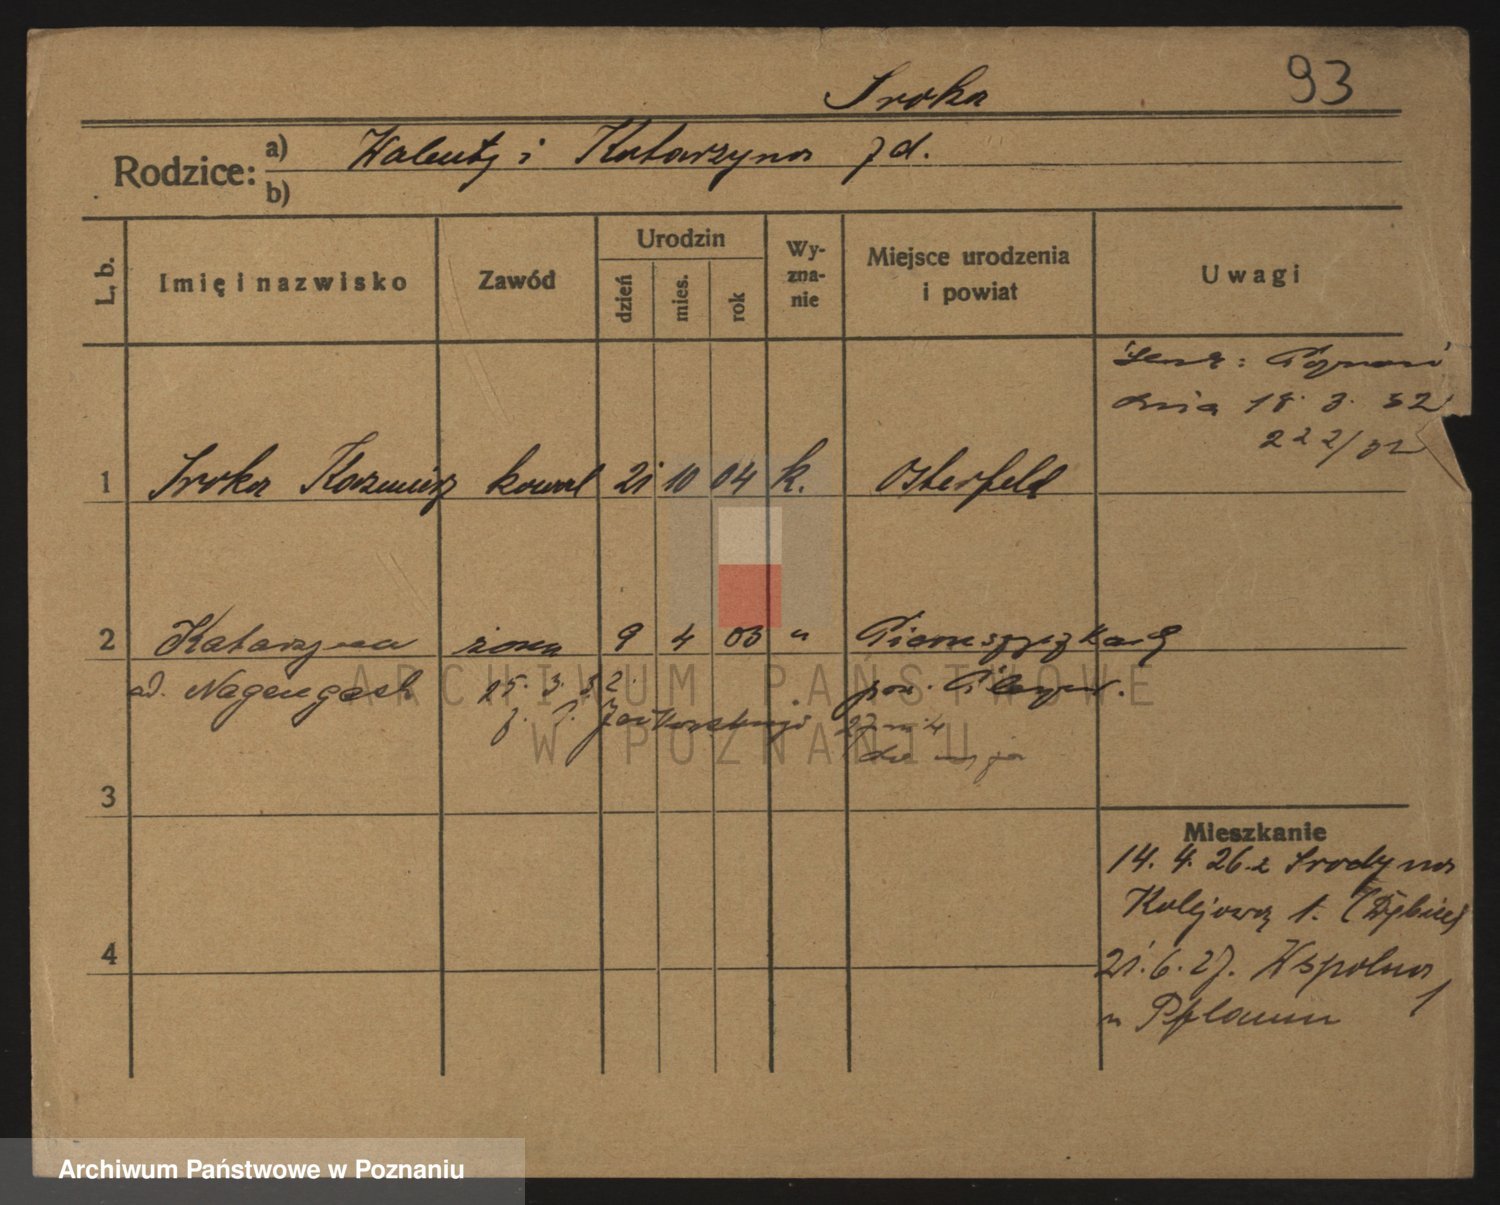 Sroka
93
Rodzice: a) Walenty i Katarzyna J d.
b)
L. b. Imię i nazwisko Zawód Urodzin dzień mies. rok Wy-zna-nie Miejsce urodzenia i powiat Uwagi
Poznań
dnia 18. 3. 32
222/32
1 Sroka Kazimierz kowal 21 10 04 k. Osterfeld
2 Katarzyna żona 9 4 03 "
25. 3. 32.
3
Mieszkanie
14. 4. 26. z Środy na
Kolejową 1. (Dębiec)
4
21. 6. 27. Wspólna 1
u Pflaum
ARCHIWUM PAŃSTWOWE
W POZNANIU
Archiwum Państwowe w Poznaniu